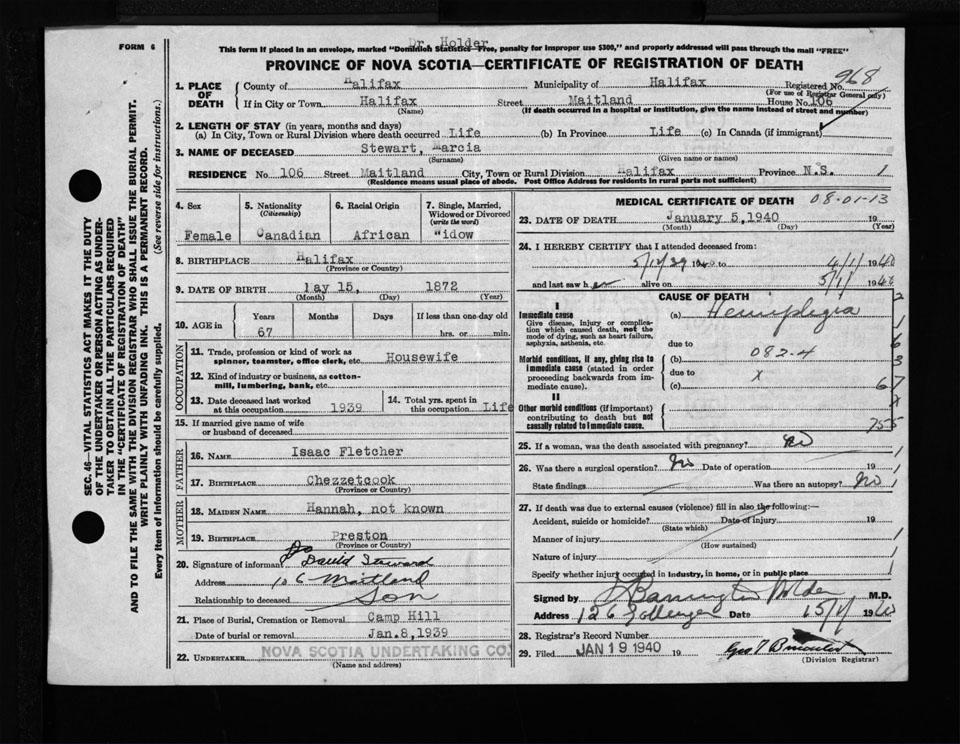 FORM 6
Dr. Holder
This form if placed in an envelope, marked "Dominion Statistics—Free, penalty for improper use $300," and properly addressed will pass through the mail "FREE"
PROVINCE OF NOVA SCOTIA—CERTIFICATE OF REGISTRATION OF DEATH
SEC. 46—VITAL STATISTICS ACT MAKES IT THE DUTY
OF THE UNDERTAKER OR PERSON ACTING AS UNDER-
TAKER TO OBTAIN ALL THE PARTICULARS REQUIRED
IN THE "CERTIFICATE OF REGISTRATION OF DEATH"
AND TO FILE THE SAME WITH THE DIVISION REGISTRAR WHO SHALL ISSUE THE BURIAL PERMIT.
WRITE PLAINLY WITH UNFADING INK. THIS IS A PERMANENT RECORD.
Every item of Information should be carefully supplied. (See reverse side for instructions.)
1. PLACE OF DEATH
County of Halifax Municipality of Halifax Registered No. 968
(For use of Registrar General only)
If in City or Town Halifax Street Maitland House No. 106
(Name) (If death occurred in a hospital or institution, give the name instead of street and number)
2. LENGTH OF STAY (in years, months and days)
(a) In City, Town or Rural Division where death occurred Life (b) In Province Life (c) In Canada (if immigrant)
3. NAME OF DECEASED Stewart, Marcia
(Surname) (Given name or names)
RESIDENCE No. 106 Street Maitland City, Town or Rural Division Halifax Province N.S. 1
(Residence means usual place of abode. Post Office Address for residents in rural parts not sufficient)
4. Sex
Female
5. Nationality
(Citizenship)
Canadian
6. Racial Origin
African
7. Single, Married,
Widowed or Divorced
(write the word)
Widow
8. BIRTHPLACE Halifax
(Province or Country)
9. DATE OF BIRTH May 15, 1872
(Month) (Day) (Year)
10. AGE in
Years Months Days If less than one-day old
67 hrs. or min.
OCCUPATION
11. Trade, profession or kind of work as
spinner, teamster, office clerk, etc. Housewife
12. Kind of industry or business, as cotton-
mill, lumbering, bank, etc.
13. Date deceased last worked
at this occupation 1939
14. Total yrs. spent in
this occupation Life
15. If married give name of wife
or husband of deceased
FATHER
16. NAME Isaac Fletcher
17. BIRTHPLACE Chezzetcook
(Province or Country)
MOTHER
18. MAIDEN NAME Hannah, not known
19. BIRTHPLACE Preston
(Province or Country)
20. Signature of informant David
Address 106 Maitland
Relationship to deceased Son
21. Place of Burial, Cremation or Removal Camp Hill
Date of burial or removal Jan.8,1939
22. UNDERTAKER NOVA SCOTIA UNDERTAKING CO.
(Name and address)
MEDICAL CERTIFICATE OF DEATH 08-01-13
23. DATE OF DEATH January 5,1940 19
(Month) (Day) (Year)
24. I HEREBY CERTIFY that I attended deceased from:
5/12/39 19 to 4/1/ 1940
and last saw her alive on 5/1/ 1940
CAUSE OF DEATH
I
Immediate cause
Give disease, injury or complica-
tion which caused death, not the
mode of dying, such as heart failure,
asphyxia, asthenia, etc.
(a) Hemiplegia
due to
Morbid conditions, if any, giving rise to
immediate cause (stated in order
proceeding backwards from im-
mediate cause).
(b) 082-4
due to x
(c) 67
II
Other morbid conditions (if important)
contributing to death but not
causally related to immediate cause.
755
25. If a woman, was the death associated with pregnancy? no
26. Was there a surgical operation? No Date of operation 19
State findings Was there an autopsy? No
27. If death was due to external causes (violence) fill in also the following:—
Accident, suicide or homicide? Date of injury 19
(State which)
Manner of injury
(How sustained)
Nature of injury
Specify whether injury occurred in industry, in home, or in public place
Signed by Holder M.D.
Address 126 Date 15/1/ 1940
28. Registrar's Record Number
29. Filed JAN 19 1940 19
(Division Registrar)